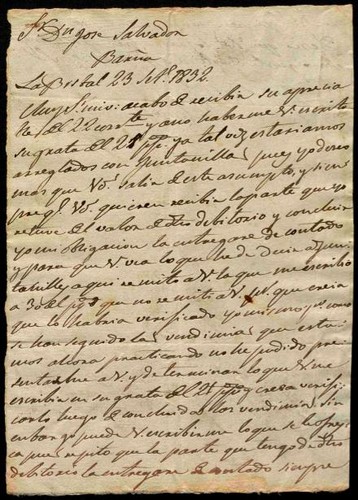 Sr Dn Jose Salvador
Barña
La Bisbal 23 Set.e 1832.
Muy Sr mio: acabo de recibir su aprecia
ble del 22 corrte y a no haberme V. escrito
su grata del 21 ppo ya tal vez estariamos
arreglados con Quintanilla, pues yo deseo
mas que Vd. salir de este asumpto, y si en
V. quiere recibir la parte que yo
retuve del valor de dho debitorio y concluir
yo mi obligacion la entregare de contado
y para que V. vea lo que he de decir a Quin
tanilla, aqui remito a V. la que me escribio
a 30 del que no remiti a V. pr que creia
que lo habria verificado yo mismo, pero como
se han seguido la vendimia que esta
mos ahora practicando no he podido pre
sentarme a V. y determinar lo que V. me
escribia en su grata del 21 ppo y crea verifi
carlo luego de concluidas las vendimias, sin
embargo puede V. escribirme lo que se le ofrez
ca que repito que la parte que tengo de dho
debitorio la entregare de contado siempre